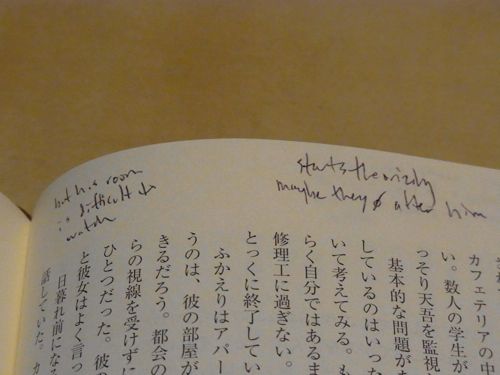 but his room
is difficult to
watch
starts theorizing
maybe they after him
カフェテリアの中
い。数人の学生が
っそり天吾を監視
基本的な問題が
しているのはいった
いて考えてみる。も
らく自分ではあるま
修理工に過ぎない。
とっくに終了してい
ふかえりはアパー
うのは、彼の部屋が
きるだろう。都会の
らの視線を受けずに
ひとつだった。彼の
と彼女はよく言っ
日暮れ前になる
話していた。カ